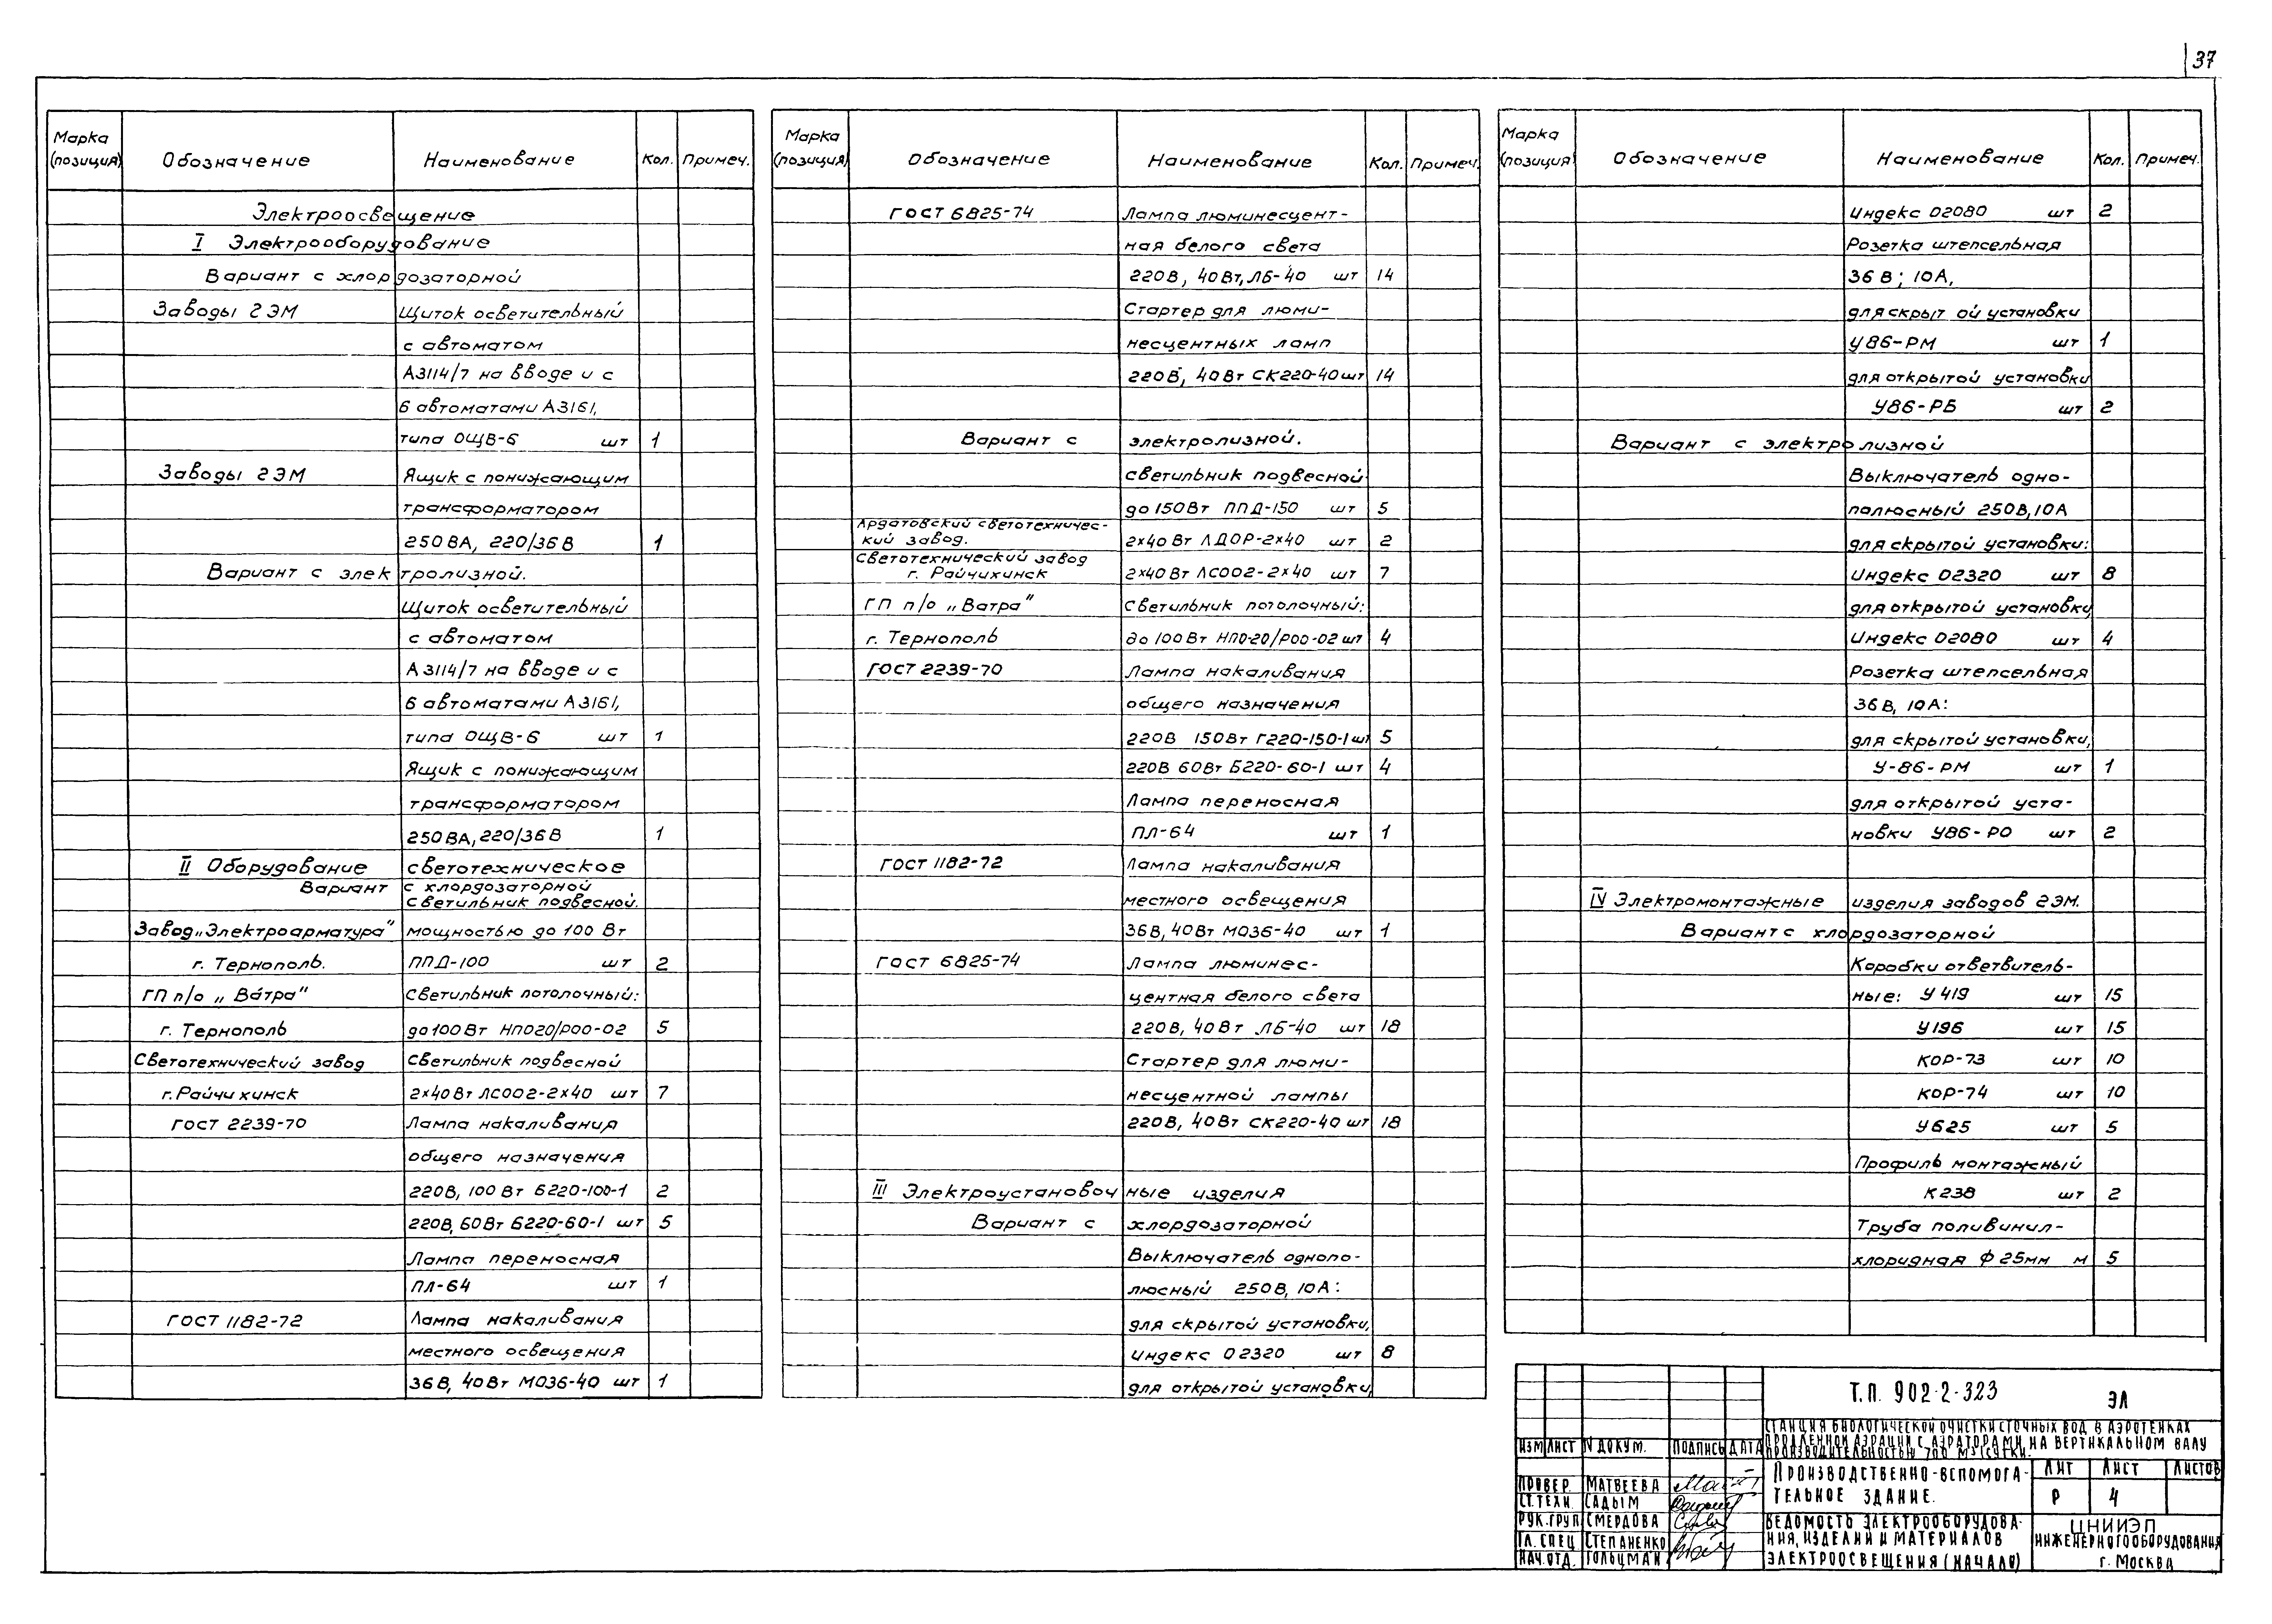 37
Марка (позиция) Обозначение Наименование Кол. Примеч.
Электроосвещение
I Электрооборудование
Вариант с хлордозаторной
Заводы ГЭМ Щиток осветительный
с автоматом
А3114/7 на вводе и с
6 автоматами А3161,
типа ОЩВ-6 шт 1
Заводы ГЭМ Ящик с понижающим
трансформатором
250 ВА, 220/36 В 1
Вариант с электролизной.
Щиток осветительный
с автоматом
А3114/7 на вводе и с
6 автоматами А3161,
типа ОЩВ-6 шт 1
Ящик с понижающим
трансформатором
250 ВА, 220/36 В 1
II Оборудование светотехническое
Вариант с хлордозаторной
светильник подвесной.
Завод „Электроарматура" мощностью до 100 Вт
г. Тернополь. ППД-100 шт 2
ГП п/о „Ватра" Светильник потолочный:
г. Тернополь до 100 Вт НПО20/Р00-02 5
Светотехнический завод Светильник подвесной
г. Райчихинск 2×40 Вт ЛСО02-2×40 шт 7
ГОСТ 2239-70 Лампа накаливания
общего назначения
220В, 100 Вт Б220-100-1 2
220В, 60 Вт Б220-60-1 шт 5
Лампа переносная
ПЛ-64 шт 1
ГОСТ 1182-72 Лампа накаливания
местного освещения
36 В, 40 Вт МО36-40 шт 1
Марка (позиция) Обозначение Наименование Кол. Примеч.
ГОСТ 6825-74 Лампа люминесцент-
ная белого света
220 В, 40 Вт, ЛБ-40 шт 14
Стартер для люми-
несцентных ламп
220В, 40 Вт СК220-40 шт 14
Вариант с электролизной.
светильник подвесной
до 150 Вт ППД-150 шт 5
Ардатовский светотехничес-
кий завод. 2×40 Вт ЛДОР-2×40 шт 2
Светотехнический завод
г. Райчихинск 2×40 Вт ЛСО02-2×40 шт 7
ГП п/о „Ватра" Светильник потолочный:
г. Тернополь до 100 Вт НПО-20/Р00-02 шт 4
ГОСТ 2239-70 Лампа накаливания
общего назначения
220В 150 Вт Г220-150-1 шт 5
220В 60 Вт Б220-60-1 шт 4
Лампа переносная
ПЛ-64 шт 1
ГОСТ 1182-72 Лампа накаливания
местного освещения
36 В, 40 Вт МО36-40 шт 1
ГОСТ 6825-74 Лампа люминес-
центная белого света
220 В, 40 Вт ЛБ-40 шт 18
Стартер для люми-
несцентной лампы
220В, 40 Вт СК220-40 шт 18
III Электроустановочные изделия
Вариант с хлордозаторной
Выключатель однопо-
люсный 250 В, 10А:
для скрытой установки,
индекс 02320 шт 8
для открытой установки,
Марка (позиция) Обозначение Наименование Кол. Примеч.
Индекс 02080 шт 2
Розетка штепсельная
36 В; 10А,
для скрыт ой установки
У86-РМ шт 1
для открытой установки
У86-РБ шт 2
Вариант с электролизной
Выключатель одно-
полюсный 250 В, 10А
для скрытой установки:
Индекс 02320 шт 8
для открытой установки,
Индекс 02080 шт 4
Розетка штепсельная
36 В, 10А:
для скрытой установки,
У-86-РМ шт 1
для открытой уста-
новки У86-РО шт 2
IV Электромонтажные изделия заводов ГЭМ.
Вариант с хлордозаторной
Коробки ответвитель-
ные: У 419 шт 15
У196 шт 15
КОР-73 шт 10
КОР-74 шт 10
У625 шт 5
Профиль монтажный
К 238 шт 2
Труба поливинил-
хлоридная ф 25мм м 5
Т.П. 902-2-323 ЭЛ
СТАНЦИЯ БИОЛОГИЧЕСКОЙ ОЧИСТКИ СТОЧНЫХ ВОД В АЭРОТЕНКАХ
ПРОДЛЕННОЙ АЭРАЦИИ С АЭРАТОРАМИ НА ВЕРТИКАЛЬНОМ ВАЛУ
ПРОИЗВОДИТЕЛЬНОСТЬЮ 700 М3/СУТКИ.
ИЗМ ЛИСТ N ДОКУМ. ПОДПИСЬ ДАТА
ПРОВЕР. МАТВЕЕВА
СТ.ТЕХН. САДЫМ
РУК.ГРУП СМЕРДОВА
ГЛ.СПЕЦ СТЕПАНЕНКО
НАЧ.ОТД. ГОЛЬЦМАН
ПРОИЗВОДСТВЕННО-ВСПОМОГА-
ТЕЛЬНОЕ ЗДАНИЕ.
ЛИТ ЛИСТ ЛИСТОВ
Р 4
ВЕДОМОСТЬ ЭЛЕКТРООБОРУДОВА-
НИЯ, ИЗДЕЛИЙ И МАТЕРИАЛОВ
ЭЛЕКТРООСВЕЩЕНИЯ (НАЧАЛО)
ЦНИИЭП
ИНЖЕНЕРНОГО ОБОРУДОВАНИЯ
г. МОСКВА